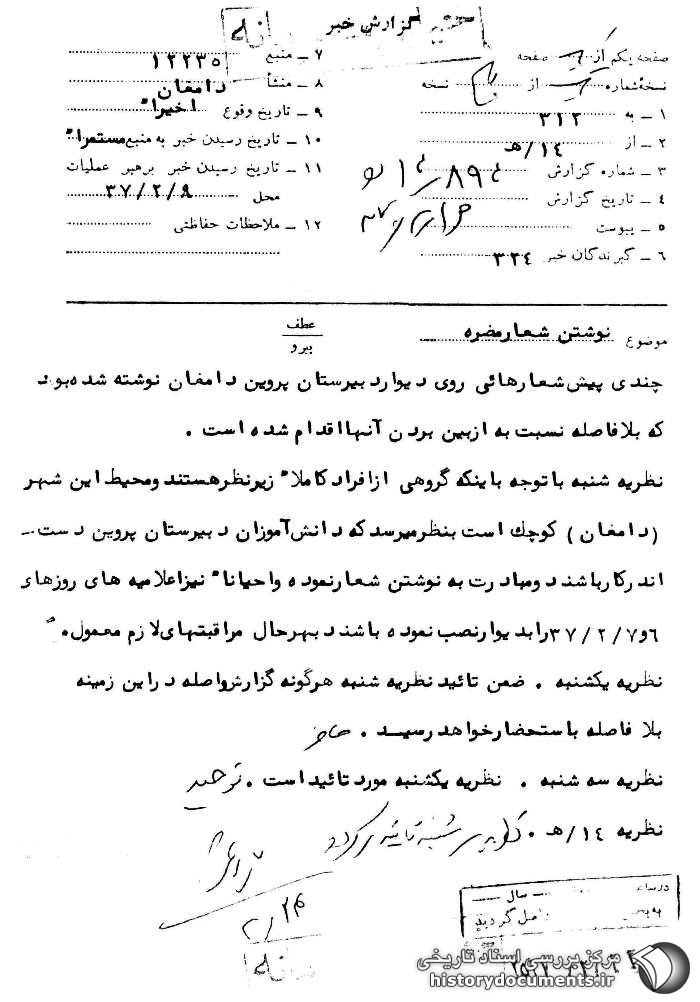 گزارش خبر
صفحه یکم از یک صفحه
نسخه شماره از نسخه
۱ ـ به ۳۱۲
۲ ـ از ۱۴/هـ
۳ ـ شماره گزارش
۴ ـ تاریخ گزارش
۵ ـ پیوست
۶ ـ گیرندگان خبر ۳۳۴
۷ ـ منبع ۱۲۲۳۵
۸ ـ منشأ دامغان
۹ ـ تاریخ وقوع اخیراً
۱۰ ـ تاریخ رسیدن خبر به منبع مستمراً
۱۱ ـ تاریخ رسیدن خبر برهبر عملیات
محل ۳۷/۲/۹
۱۲ ـ ملاحظات حفاظتی
موضوع نوشتن شعار مضره
عطف
پیرو
چندی پیش شعارهائی روی دیوار دبیرستان پروین دامغان نوشته شده بود
که بلافاصله نسبت به ازبین بردن آنها اقدام شده است .
نظریه شنبه با توجه باینکه گروهی از افراد کاملاً زیرنظر هستند و محیط این شهر
(دامغان) کوچک است بنظر میرسد که دانش‌آموزان دبیرستان پروین دست ـ
اندرکار باشند و مبادرت به نوشتن شعار نموده و احیاناً نیز اعلامیه های روزهای
۶و۳۷/۲/۷ را بدیوار نصب نموده باشند بهرحال مراقبتهای لازم معمول .
نظریه یکشنبه . ضمن تائید نظریه شنبه هرگونه گزارش واصله در این زمینه
بلا فاصله باستحضار خواهد رسید .
نظریه سه شنبه . نظریه یکشنبه مورد تائید است . توحید
نظریه ۱۴/هـ .
۲/۲۴
سال
مرکز بررسی اسناد تاریخی
historydocuments.ir